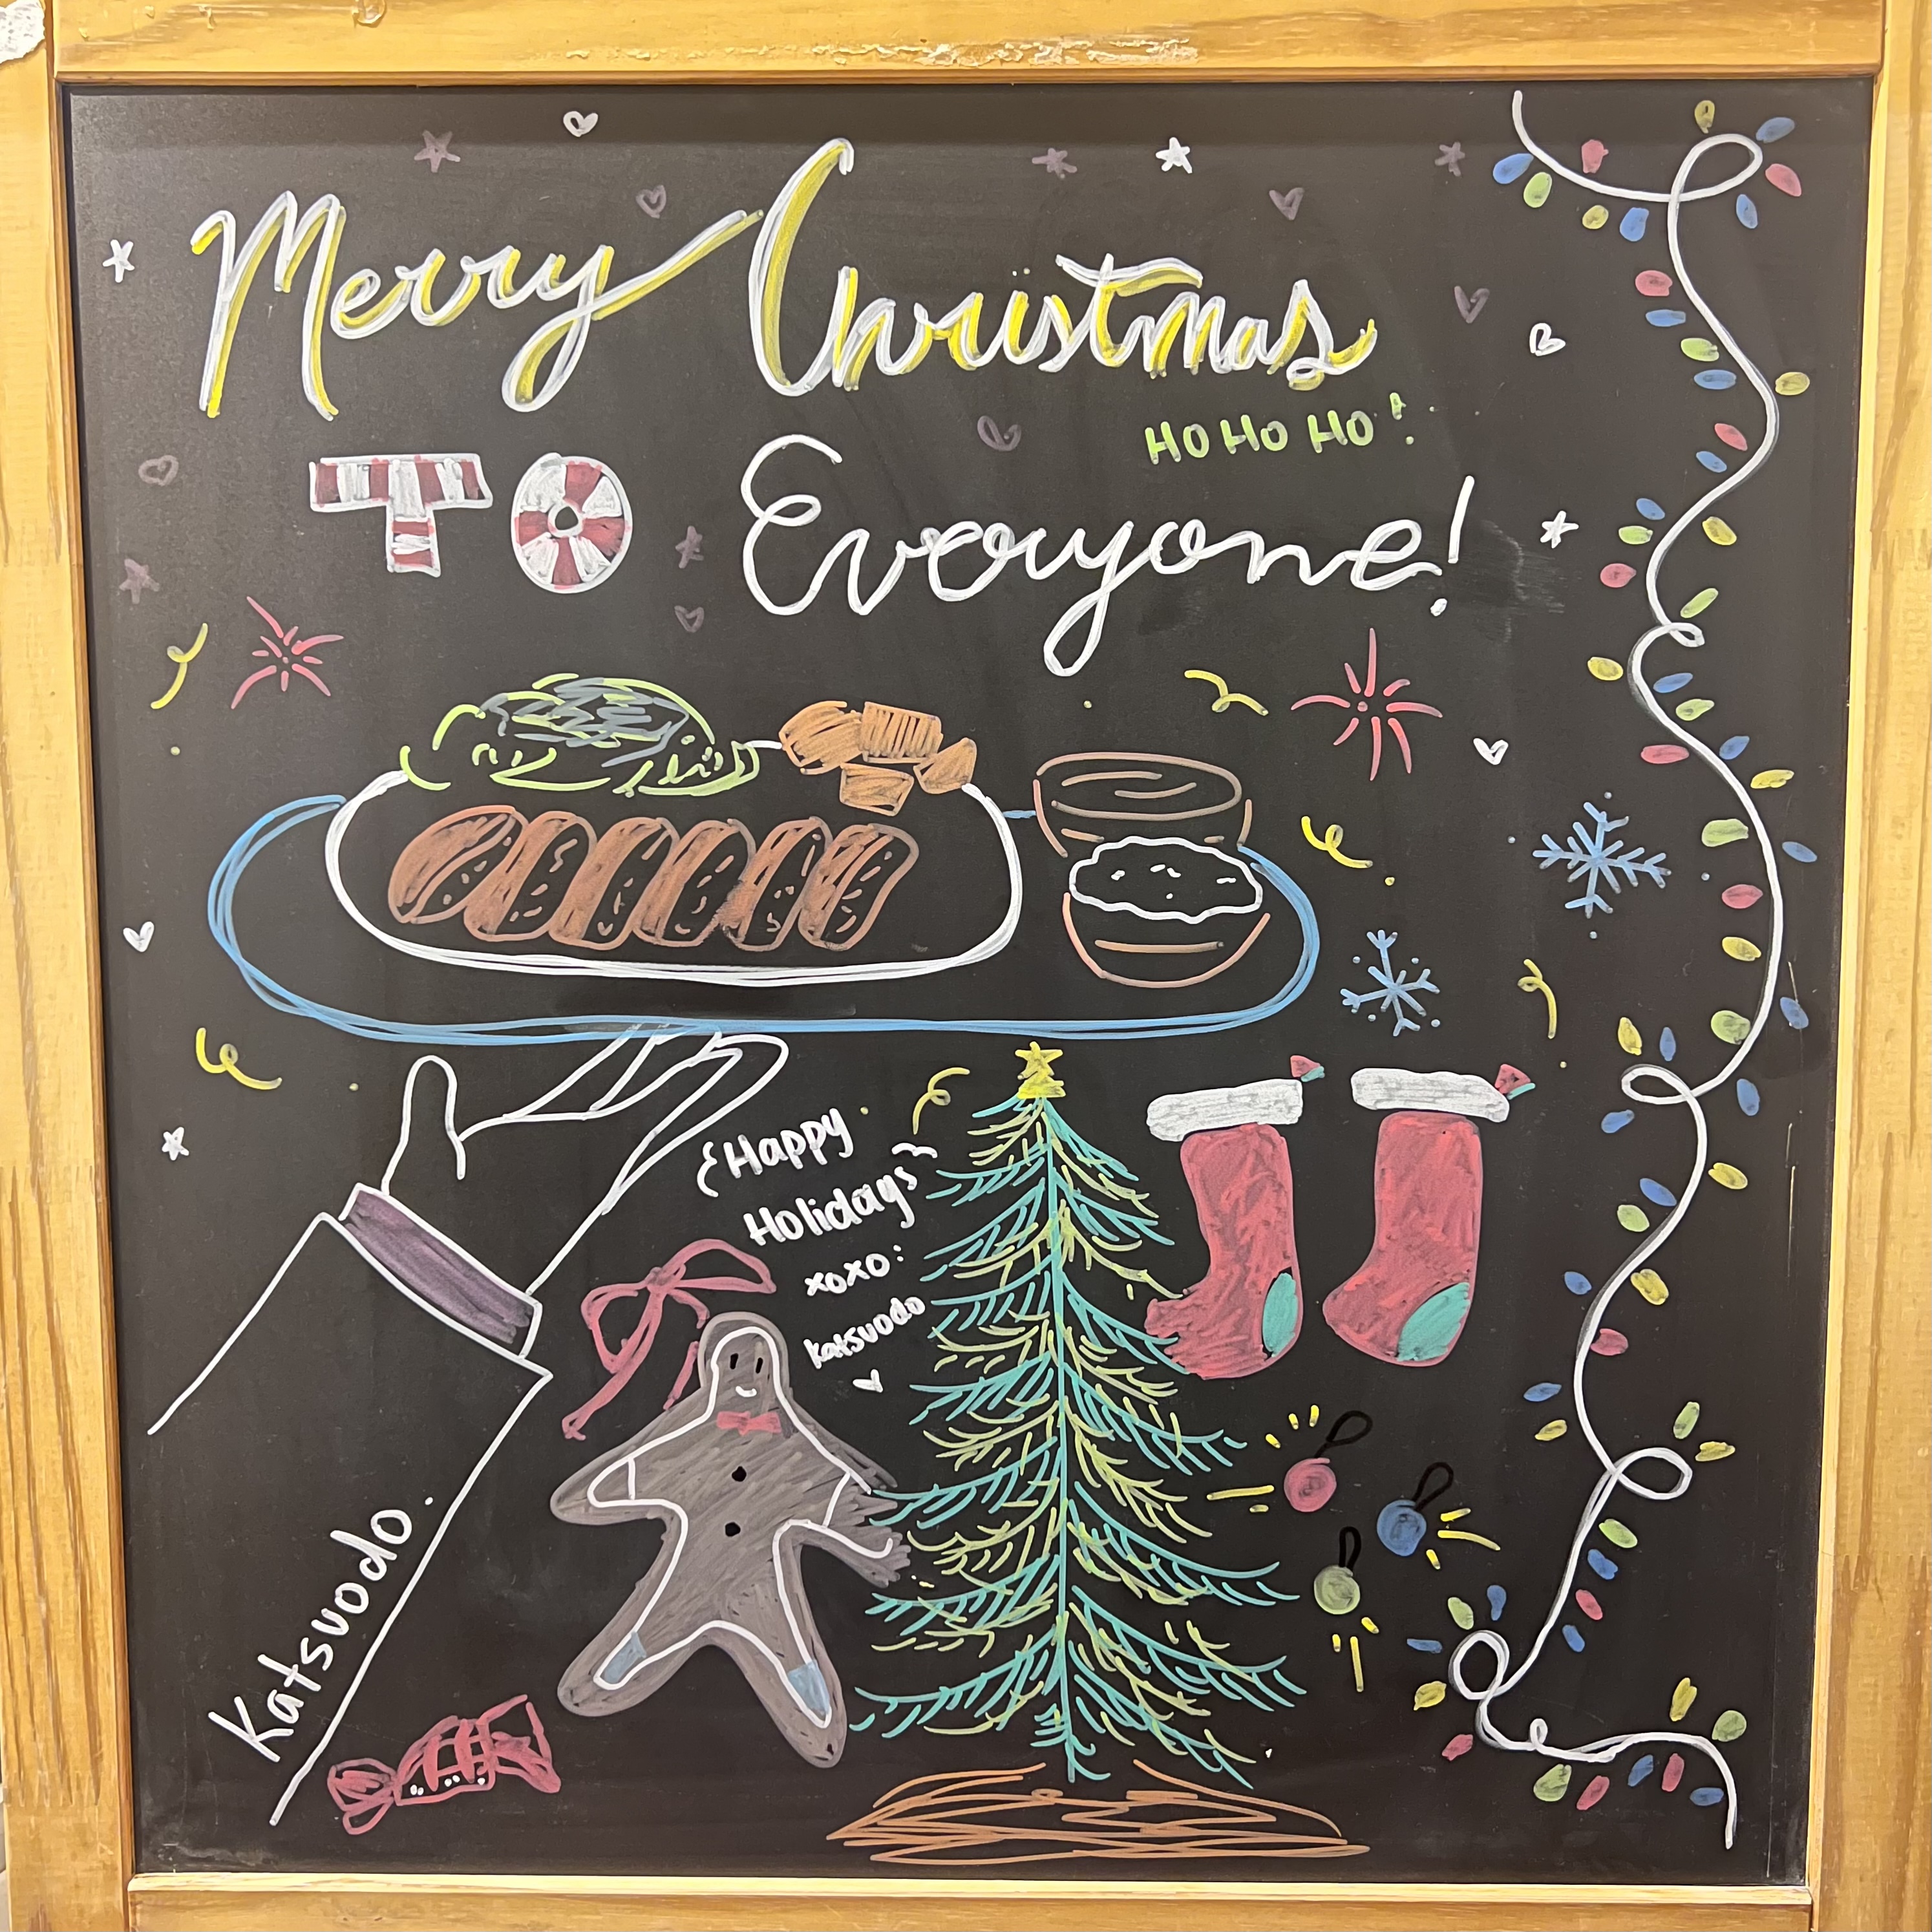 Merry Christmas
HO HO HO!
TO Everyone!
{Happy
Holidays}
xoxo:
katsuodo
Katsuodo.